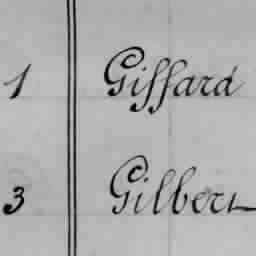 1 Giffard
3 Gilbert